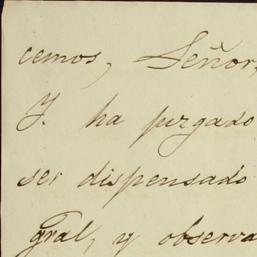 cemos, Señor,
Y. ha pezgado
ser dispensado
Gral, y observa